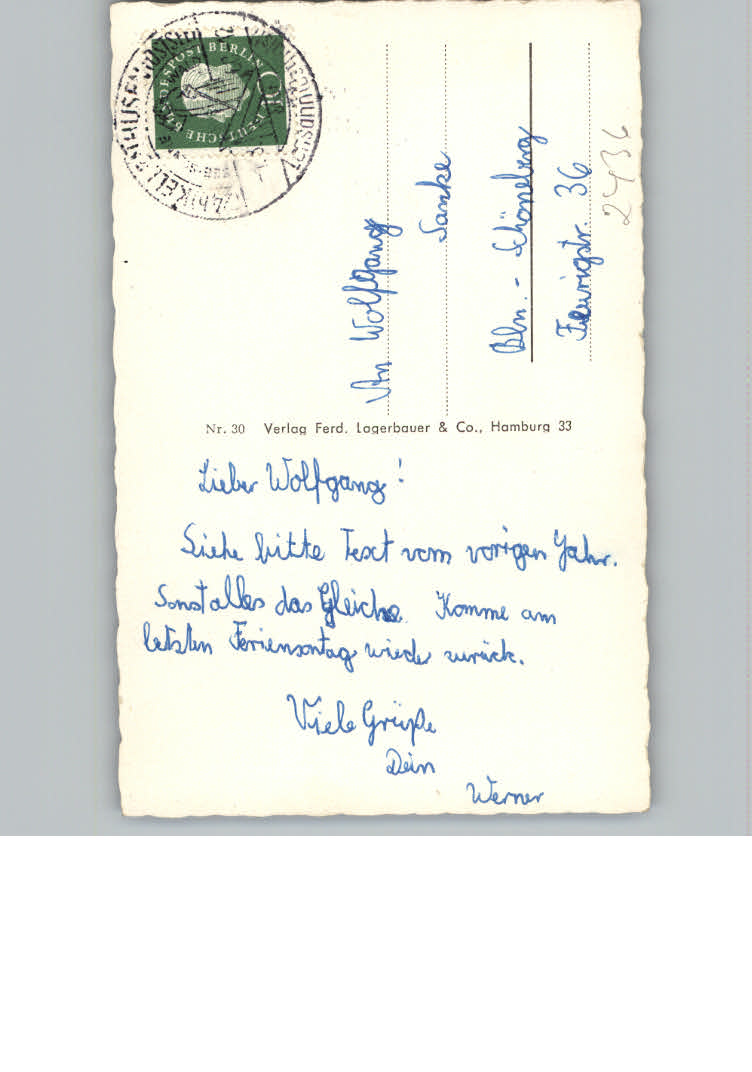 DEUTSCHE BUNDESPOST BERLIN
KELLENHUSEN
An Wolfgang
Sanke
Bln. - Schöneberg
Feurigstr. 36
2436
Nr. 30 Verlag Ferd. Lagerbauer & Co., Hamburg 33
Lieber Wolfgang!
Siehe bitte Text vom vorigen Jahr.
Sonst alles das Gleiche. Komme am
letzten Feriensontag wieder zurück.
Viele Grüße
Dein
Werner